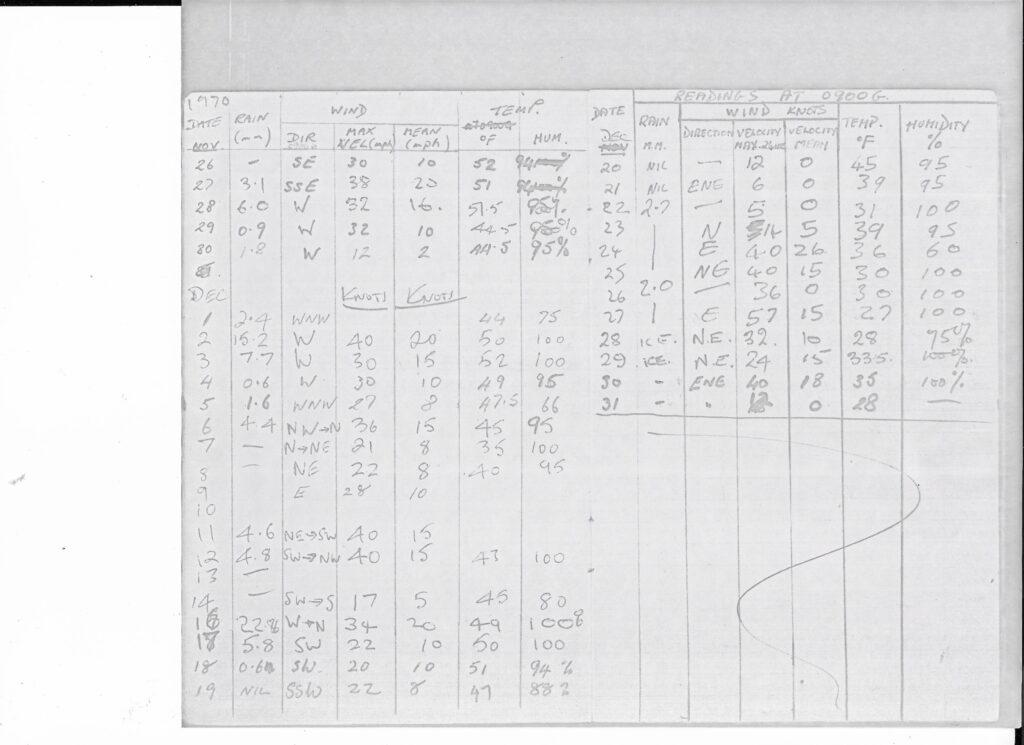 1970
DATE RAIN (mm) WIND TEMP.
NOV DIR MAX VEL(mph) MEAN (mph) °F HUM.
26 – SE 30 10 52 94%
27 3.1 SSE 38 20 51 94%
28 6.0 W 32 16. 51.5 95%
29 0.9 W 32 10 44.5 95%
30 1.8 W 12 2 44.5 95%
DEC KNOTS KNOTS
1 2.4 WNW 44 75
2 15.2 W 40 20 50 100
3 7.7 W 30 15 52 100
4 0.6 W. 30 10 49 95
5 1.6 WNW 27 8 47.5 66
6 4.4 NW→N 36 15 45 95
7 — N→NE 21 8 35 100
8 – NE 22 8 40 95
9 E 28 10
10
11 4.6 NE→SW 40 15
12 4.8 SW→NW 40 15 43 100
13 —
14 – SW→S 17 5 45 80
16 22.8 W→N 34 20 49 100%
17 5.8 SW 22 10 50 100
18 0.6 SW. 20 10 51 94%
19 NIL SSW 22 8 47 88%
READINGS AT 0900G.
DATE RAIN WIND KNOTS TEMP. HUMIDITY
DEC M.M. DIRECTION VELOCITY MAX.24HR VELOCITY MEAN °F %
20 NIL — 12 0 45 95
21 NIL ENE 6 0 39 95
22 2.7 — 5 0 31 100
23 | N 14 5 39 95
24 | E 40 26 36 60
25 NE 40 15 30 100
26 2.0 — 36 0 30 100
27 | E 57 15 27 100
28 ICE. N.E. 32. 10 28
29 ICE. N.E. 24 15 33.5 100%
30 - ENE 40 18 35 100%
31 - " 12 0 28 —